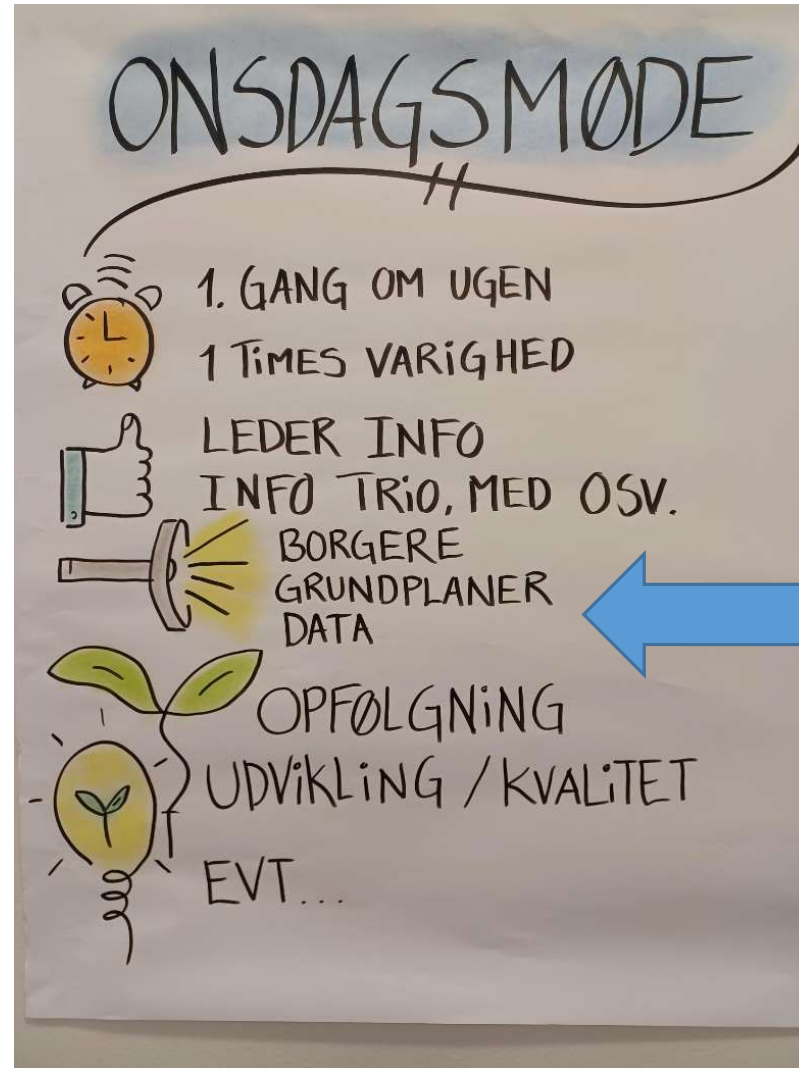 ONSDAGSMØDE
1. GANG OM UGEN
1 TIMES VARIGHED
LEDER INFO
INFO TRIO, MED OSV.
BORGERE
GRUNDPLANER
DATA
OPFØLGNING
UDVIKLING / KVALITET
EVT...